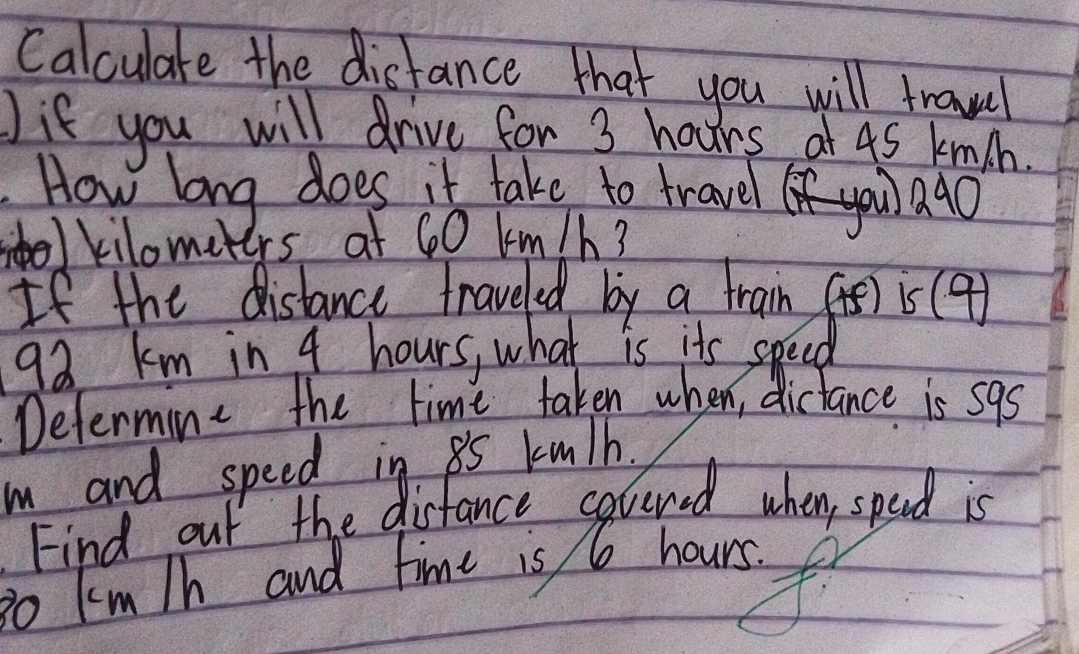 Calculate the distance that you will travel
) if you will drive for 3 hours at 45 km/h.
. How long does it take to travel (if you) 240
kilometers at 60 km/h?
If the distance traveled by a train (is) is (4)
192 km in 4 hours, what is its speed
. Determine the time taken when, distance is 595
m and speed in 85 km/h.
. Find out the distance covered when, speed is
30 km/h and time is 6 hours.